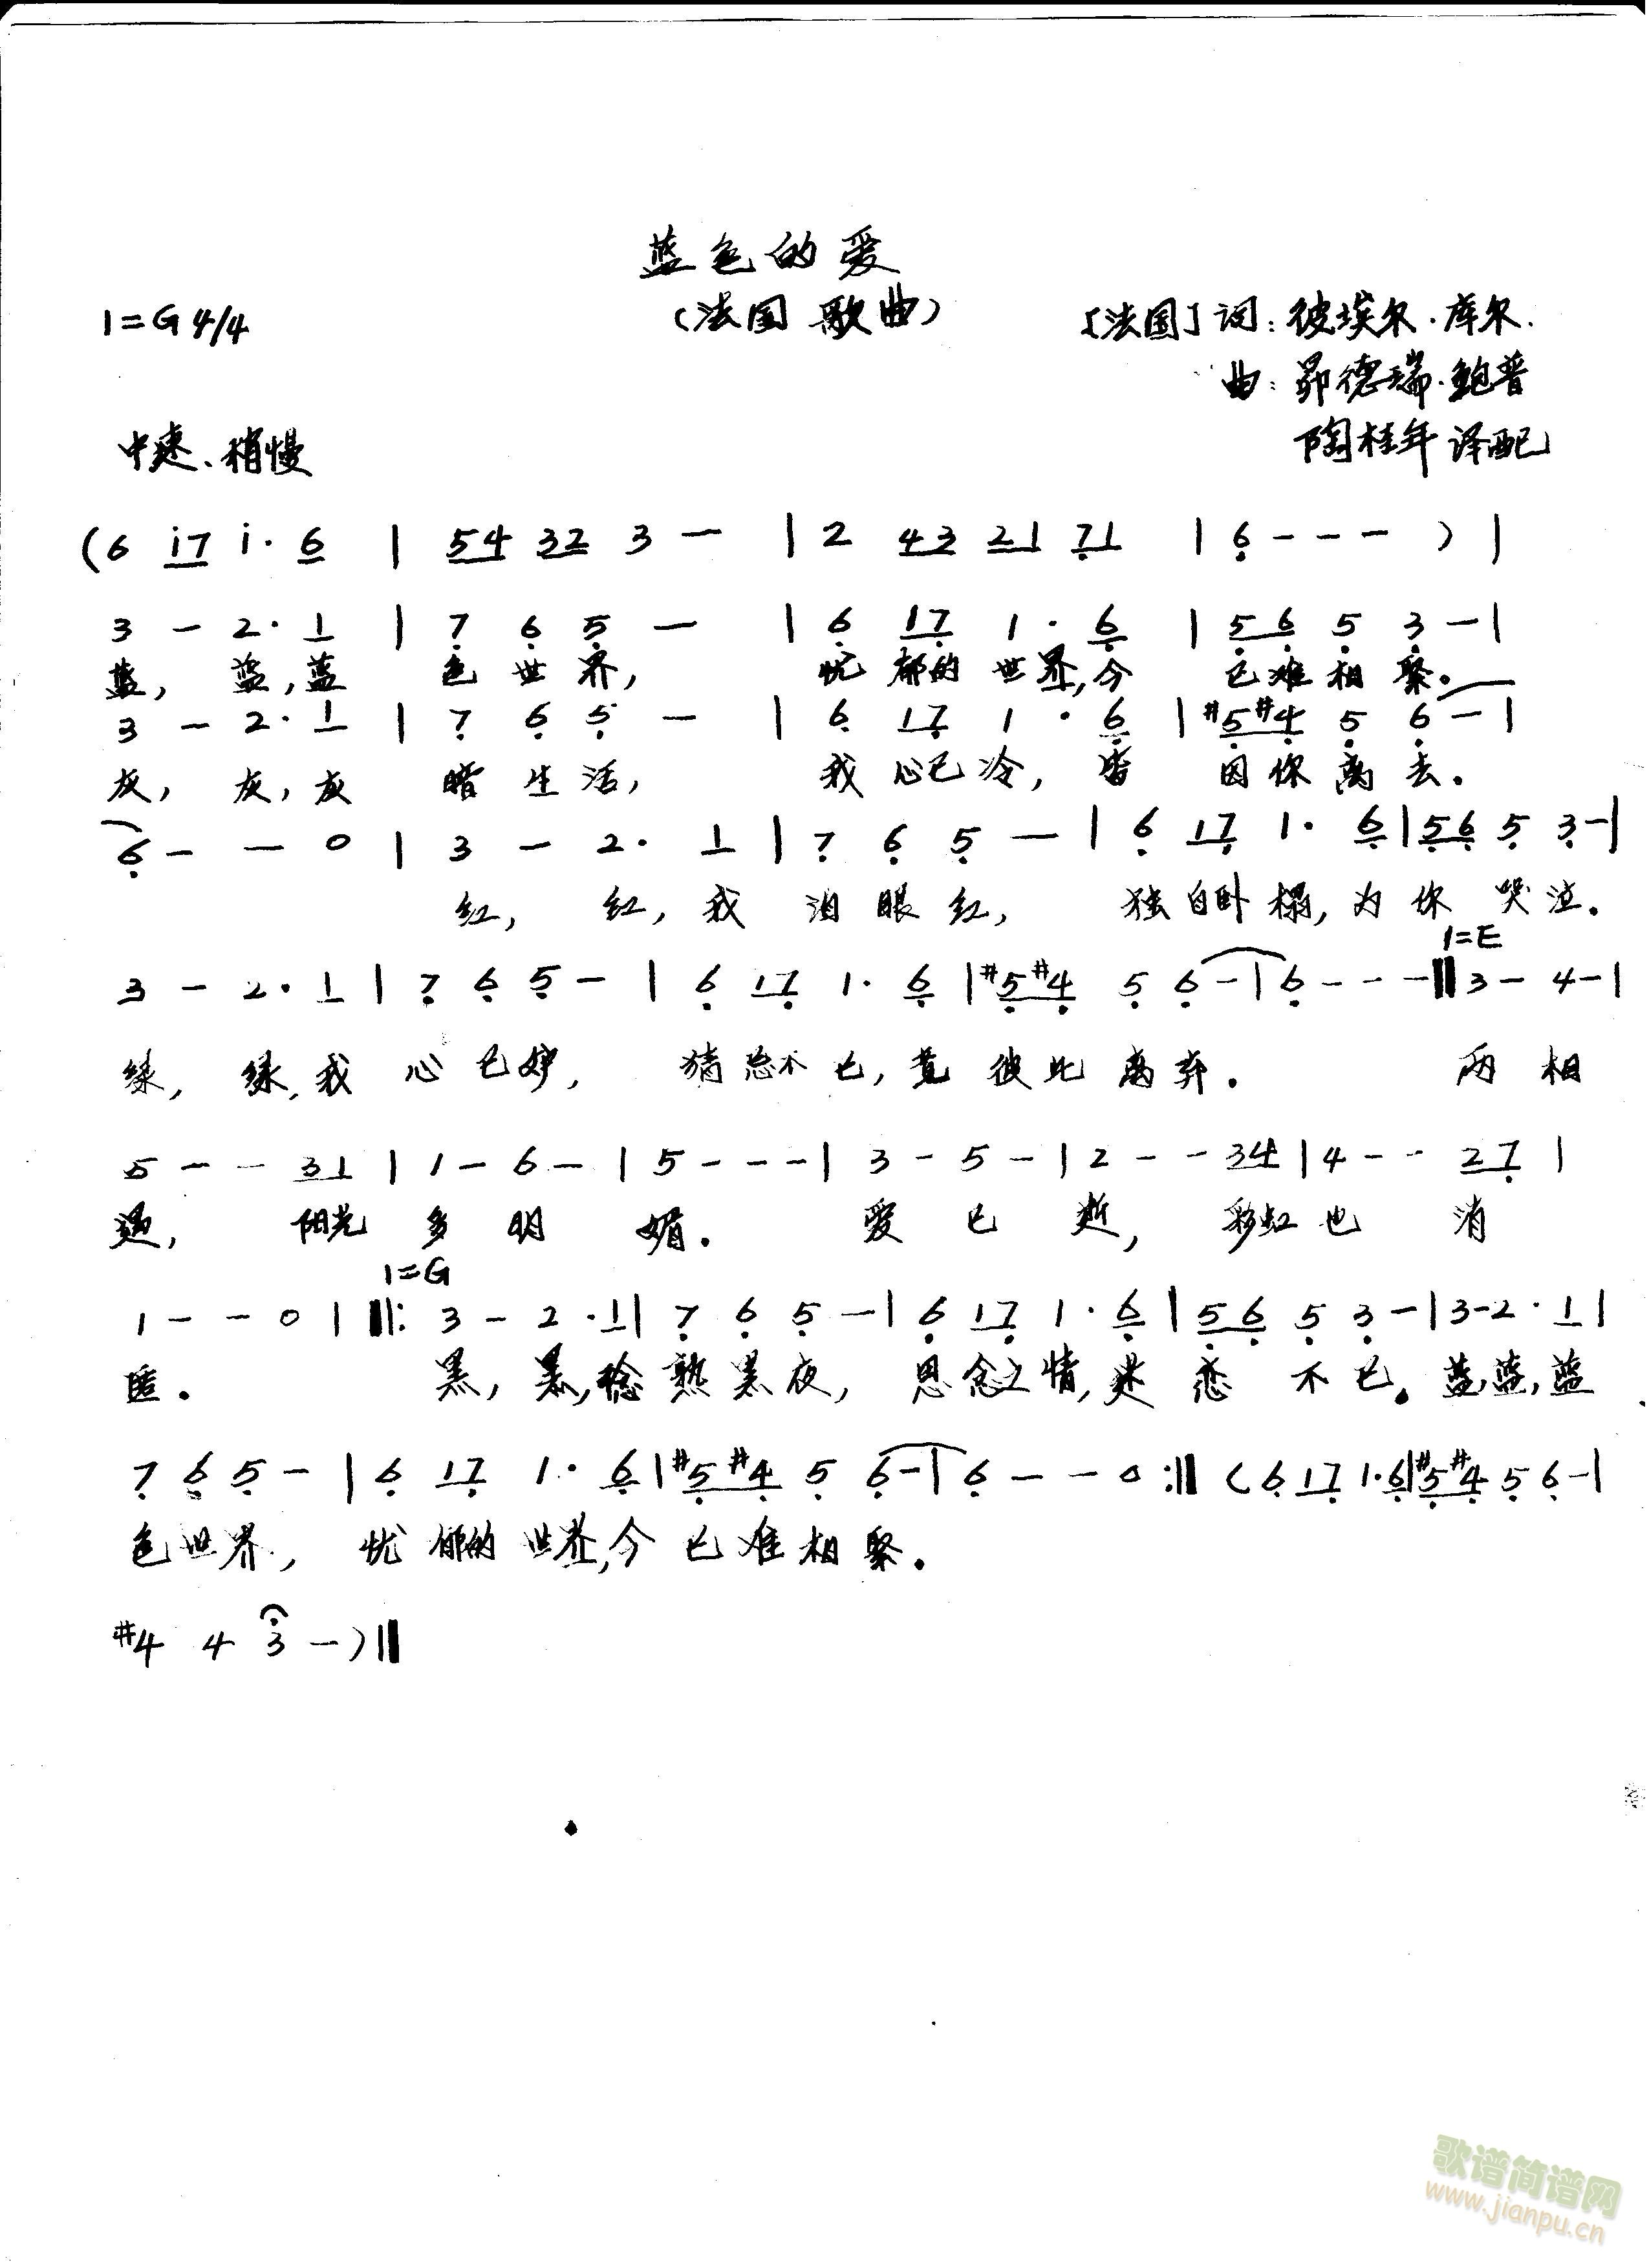 蓝色的爱
1=G 4/4 (法国 歌曲) [法国] 词: 彼埃尔·库尔.
曲: 昻德瑞·鲍普
中速、稍慢 陶桂年 译配
(6 i7 i· 6 | 54 32 3 — | 2 43 21 71 | 6 - - - ) |
3 — 2· 1 | 7 6 5 — | 6 17 1 · 6 | 56 5 3 — |
蓝, 蓝,蓝 色 世 界, 忧 郁的 世 界,今 已难 相 聚。
3 — 2· 1 | 7 6 5 — | 6 17 1 · 6 | #5#4 5 6 — |
灰, 灰,灰 暗 生 活, 我 心已 冷, 皆 因你 离 去.
6 — — 0 | 3 — 2· 1 | 7 6 5 — | 6 17 1· 6 | 56 5 3 — |
红, 红,我 泪 眼 红, 独 自卧 榻,为 你 哭 泣.
1=E
3 — 2· 1 | 7 6 5 — | 6 17 1· 6 | #5#4 5 6 — | 6 - - - ‖ 3 — 4 — |
绿, 绿,我 心 已 妒, 猜 忌不 已,竟 彼 此 离 弃. 两 相
5 — — 31 | 1 — 6 — | 5 - - - | 3 - 5 - | 2 - - 34 | 4 - - 27 |
遇, 阳光 多 明 媚. 爱 已 逝, 彩虹 也 消
1=G
1 - - 0 | ‖: 3 — 2 · 1 | 7 6 5 — | 6 17 1 · 6 | 56 5 3 — | 3 - 2 · 1 |
匿. 黑, 黑,稔 熟 黑 夜, 思 念之 情,迷 恋 不 已. 蓝,蓝,蓝
7 6 5 — | 6 17 1 · 6 | #5#4 5 6 — | 6 — — 0 :‖ (6 17 1·6 | #5#4 5 6 — |
色 世 界, 忧 郁的 世 界,今 已 难 相 聚.
#4 4 3 — ) ‖
歌谱简谱网
www.jianpu.cn